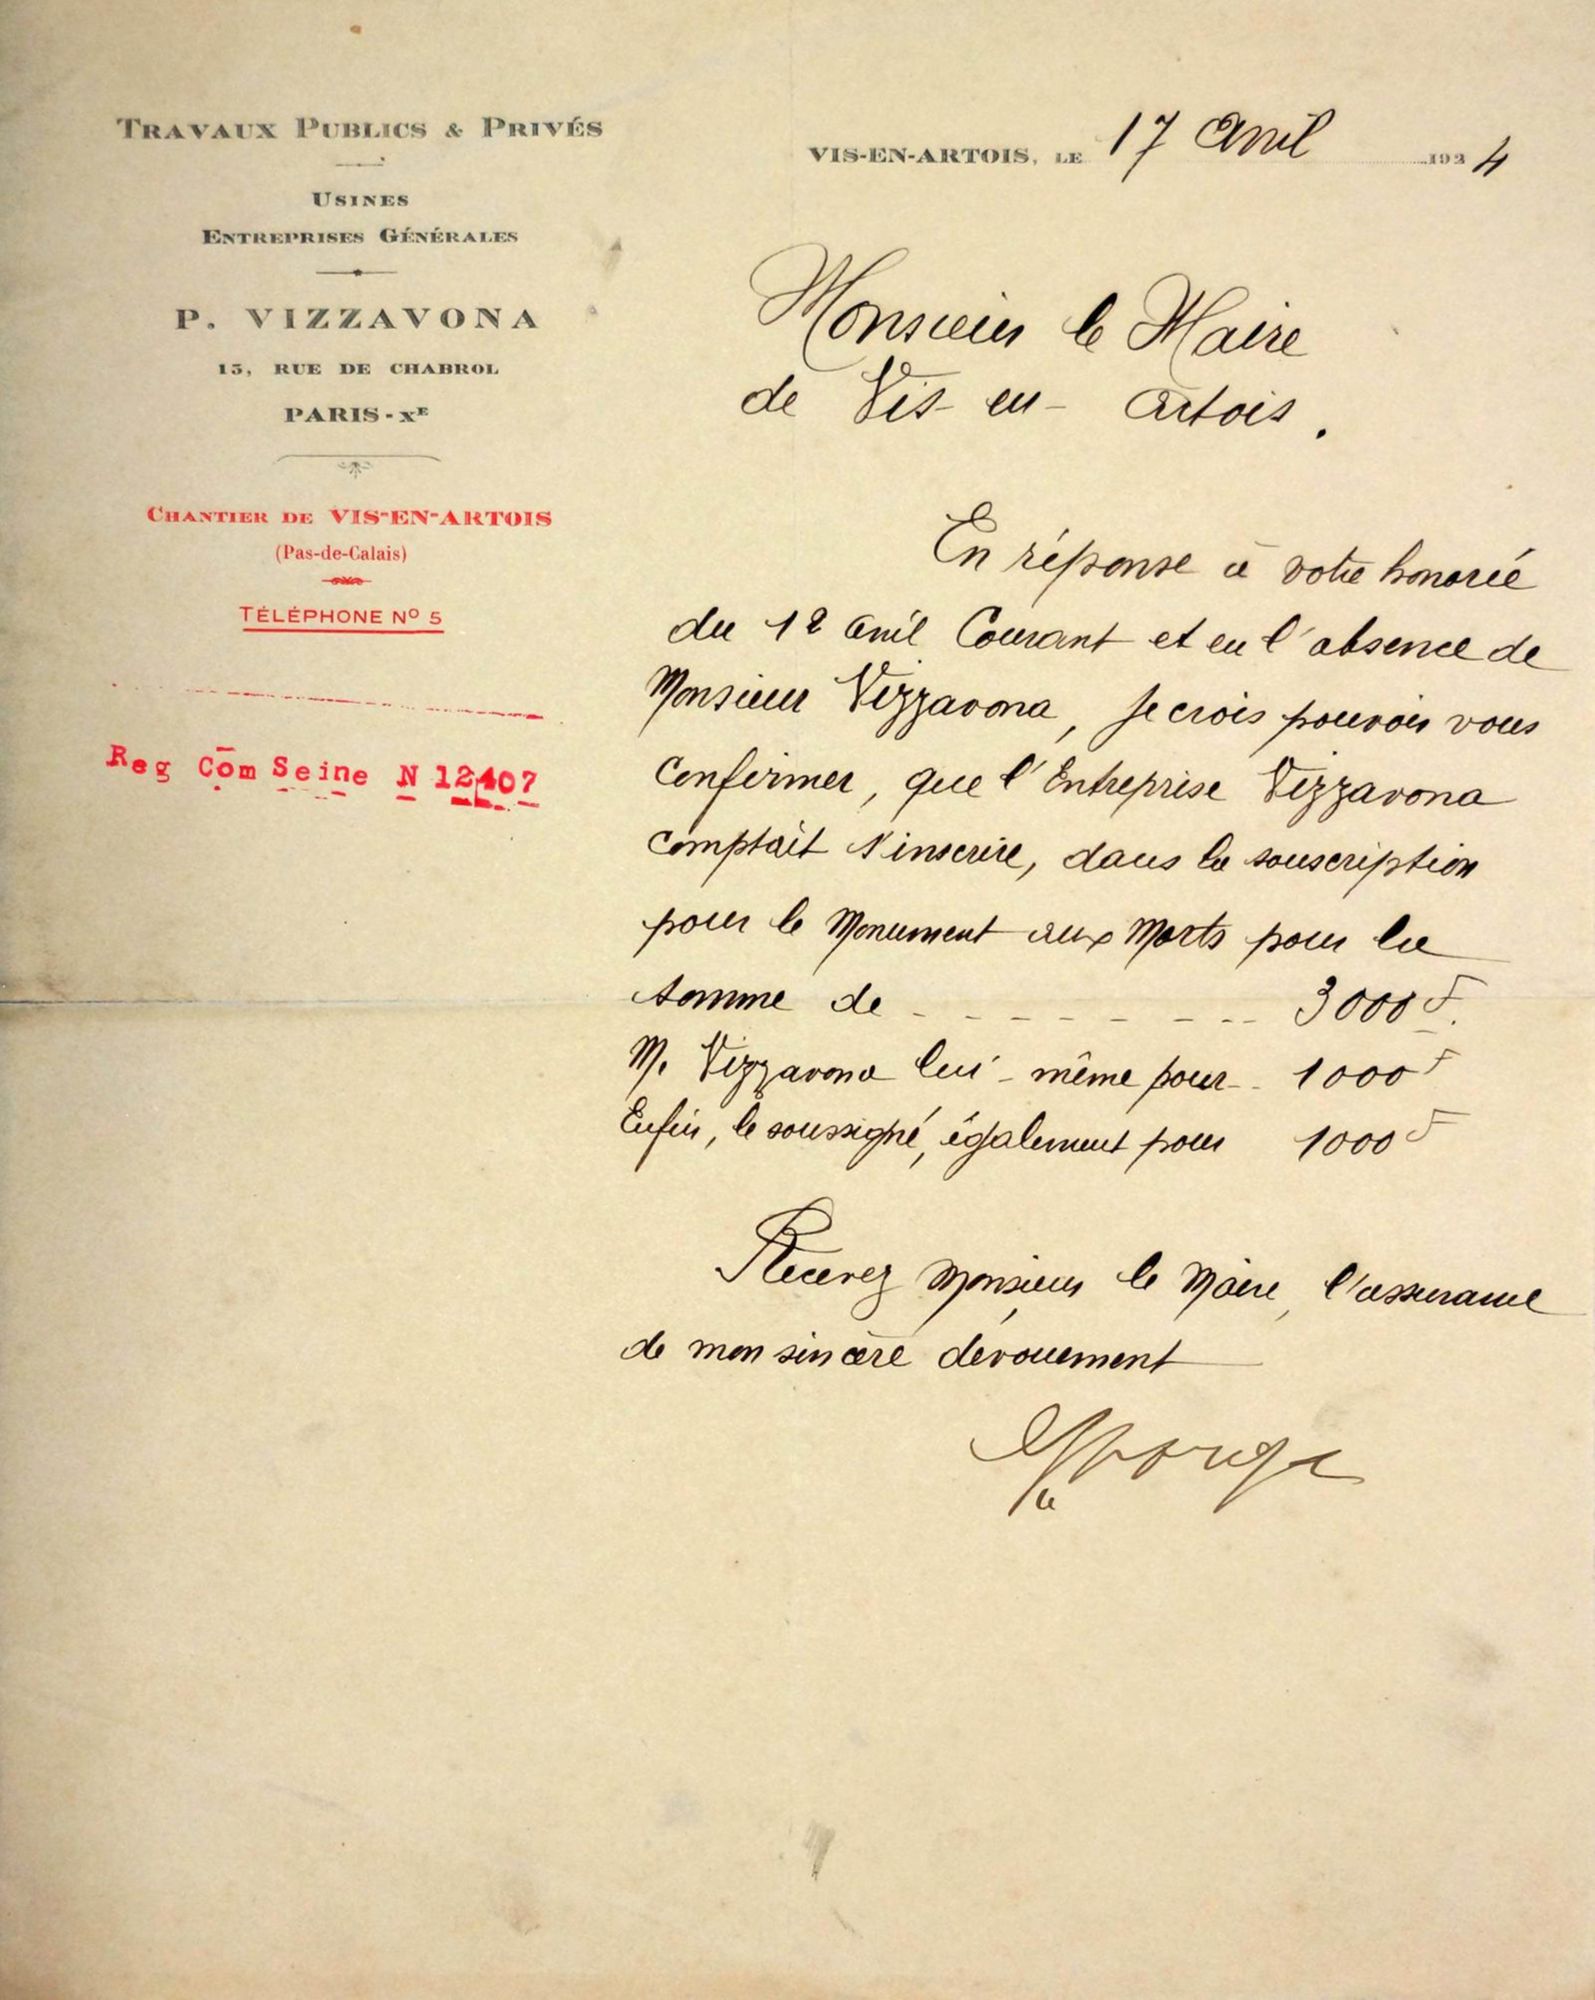 TRAVAUX PUBLICS & PRIVÉS
USINES
ENTREPRISES GÉNÉRALES
P. VIZZAVONA
15, RUE DE CHABROL
PARIS-XE
CHANTIER DE VIS-EN-ARTOIS
(Pas-de-Calais)
TÉLÉPHONE No 5
Reg Com Seine N 12407
VIS-EN-ARTOIS, LE 17 Avril 1924
Monsieur le Maire
de Vis-en-Artois.
En réponse à votre honorée
du 12 avril Courant et en l'absence de
Monsieur Vizzavona, je crois pouvoir vous
confirmer, que l'Entreprise Vizzavona
comptait s'inscrire, dans la souscription
pour le Monument aux Morts pour la
somme de - - - - - - - - - 3000 F.
M. Vizzavona lui-même pour - 1000 F
Enfin, le soussigné, également pour 1000 F
Recevez Monsieur le Maire, l'assurance
de mon sincère dévouement